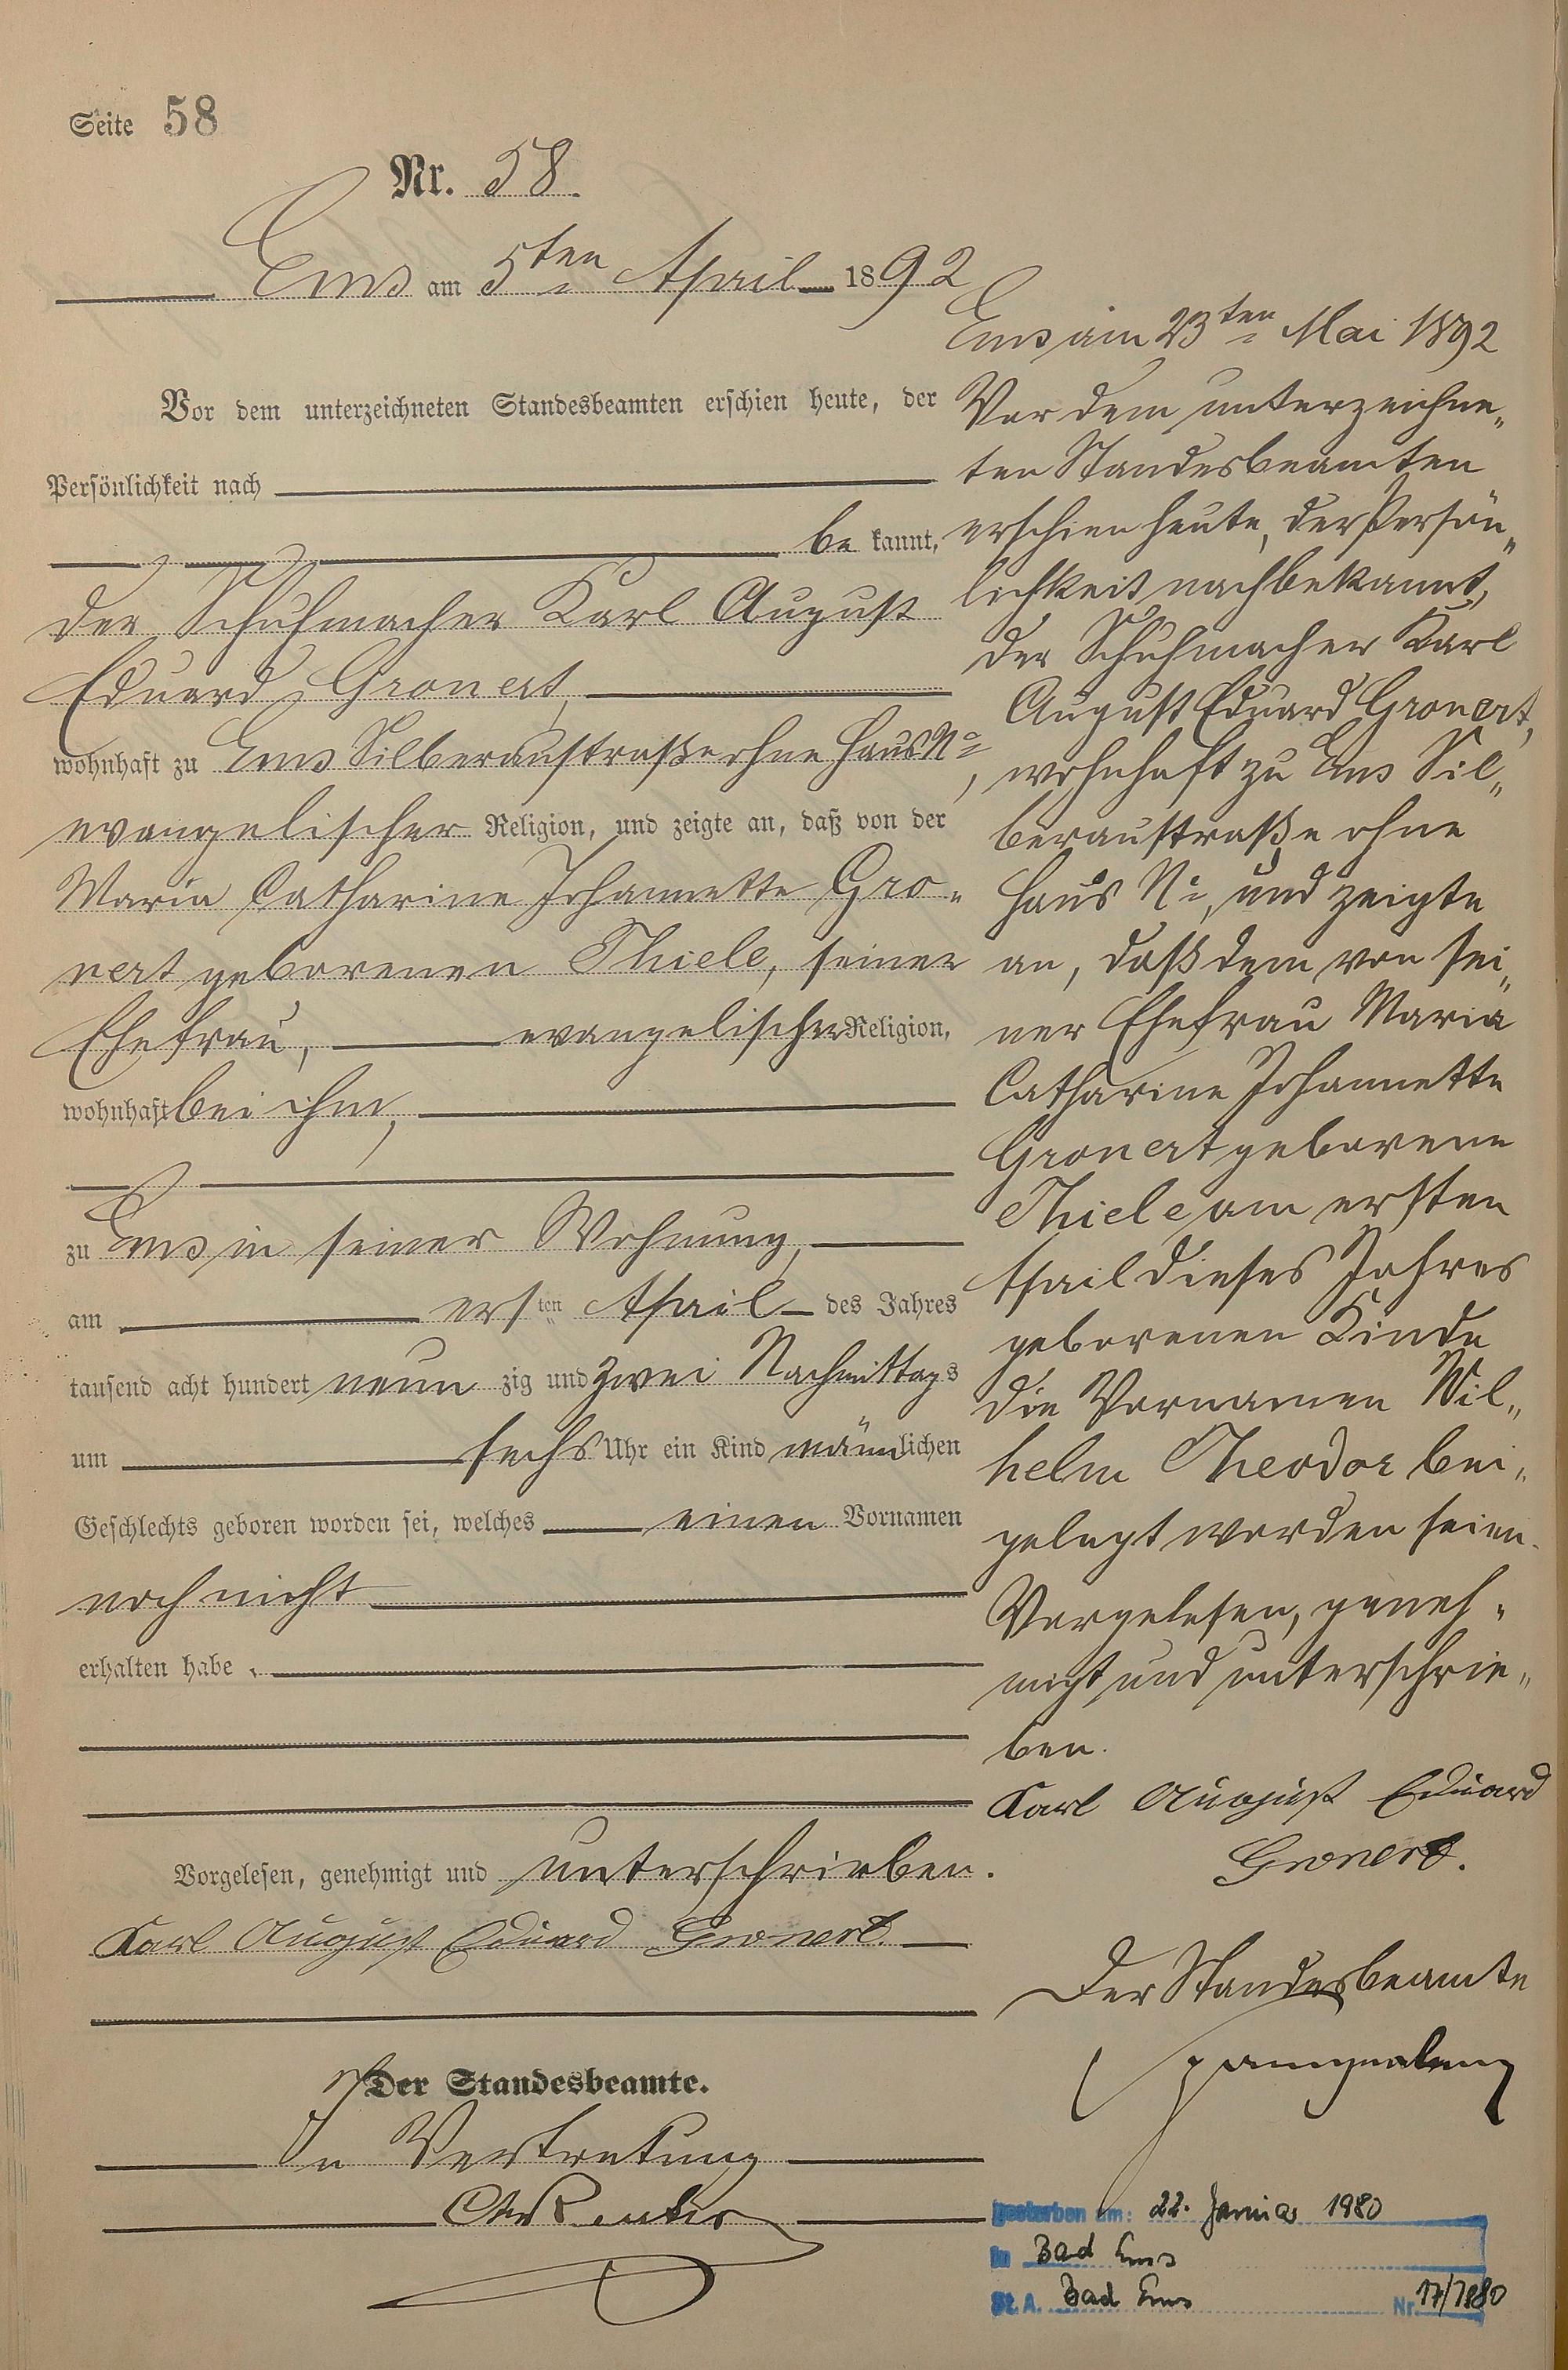 Seite 58
Nr. 58.
Ems am 5ten April 1892
Vor dem unterzeichneten Standesbeamten erschien heute, der
Persönlichkeit nach
be kannt,
der Schuhmacher Karl August
Eduard Gronert,
wohnhaft zu Ems Silberaustraße ohne Haus No,
evangelischer Religion, und zeigte an, daß von der
Maria Catharine Johannette Gro-
nert geborenen Thiele, seiner
Ehefrau, evangelischer Religion,
wohnhaft bei ihm,
zu Ems in seiner Wohnung,
am ersten April des Jahres
tausend acht hundert neun zig und zwei Nachmittags
um sechs Uhr ein Kind männlichen
Geschlechts geboren worden sei, welches einen Vornamen
noch nicht
erhalten habe.
Vorgelesen, genehmigt und unterschrieben.
Karl August Eduard Gronert.
Der Standesbeamte.
In Vertretung
Ems am 23ten Mai 1892
Vor dem unterzeichne„
ten Standesbeamten
erschien heute, der Persön„
lichkeit nach bekannt,
der Schuhmacher Karl
August Eduard Gronert,
wohnhaft zu Ems Sil„
beraustraße ohne
Haus No, und zeigte
an, daß dem von sei„
ner Ehefrau Maria
Catharine Johannette
Gronert geborene
Thiele am ersten
April dieses Jahres
geborenen Kinde
die Vornamen Wil„
helm Theodor bei„
gelegt worden seien.
Vorgelesen, geneh„
migt und unterschrie„
ben.
Karl August Eduard
Gronert.
Der Standesbeamte
Spangenberg
gestorben am: 22. Januar 1980
in Bad Ems
St. A. Bad Ems Nr. 17/1980